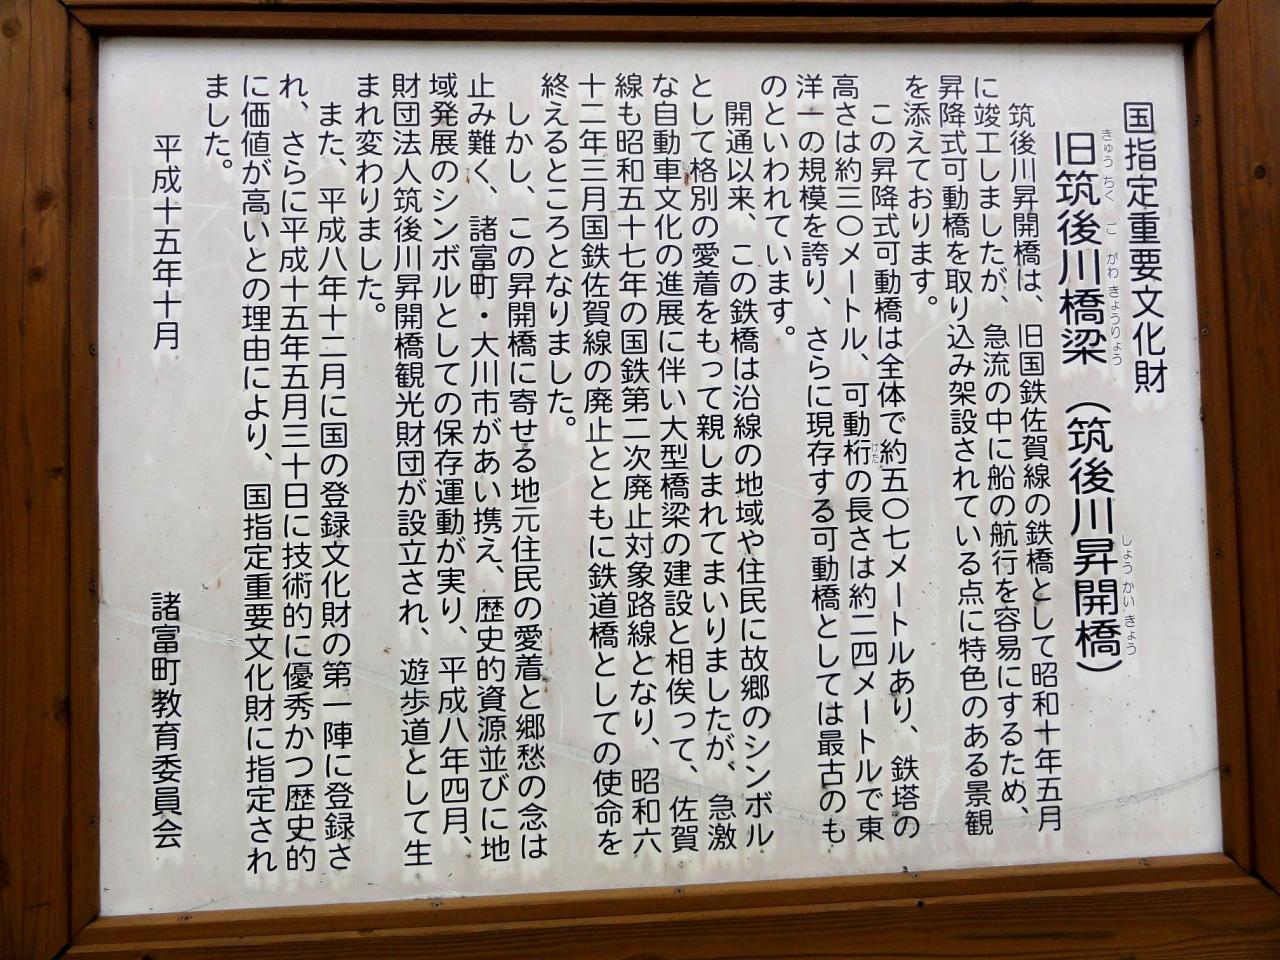 国指定重要文化財
旧筑後川橋梁（筑後川昇開橋）
きゅうちくごがわきょうりょう
しょうかいきょう
筑後川昇開橋は、旧国鉄佐賀線の鉄橋として昭和十年五月
に竣工しましたが、急流の中に船の航行を容易にするため、
昇降式可動橋を取り込み架設されている点に特色のある景観
を添えております。
この昇降式可動橋は全体で約五〇七メートルあり、鉄塔の
高さは約三〇メートル、可動桁の長さは約二四メートルで東
けた
洋一の規模を誇り、さらに現存する可動橋としては最古のも
のといわれています。
開通以来、この鉄橋は沿線の地域や住民に故郷のシンボル
として格別の愛着をもって親しまれてまいりましたが、急激
な自動車文化の進展に伴い大型橋梁の建設と相俟って、佐賀
線も昭和五十七年の国鉄第二次廃止対象路線となり、昭和六
十二年三月国鉄佐賀線の廃止とともに鉄道橋としての使命を
終えるところとなりました。
しかし、この昇開橋に寄せる地元住民の愛着と郷愁の念は
止み難く、諸富町・大川市があい携え、歴史的資源並びに地
域発展のシンボルとしての保存運動が実り、平成八年四月、
財団法人筑後川昇開橋観光財団が設立され、遊歩道として生
まれ変わりました。
また、平成八年十二月に国の登録文化財の第一陣に登録さ
れ、さらに平成十五年五月三十日に技術的に優秀かつ歴史的
に価値が高いとの理由により、国指定重要文化財に指定され
ました。
平成十五年十月
諸富町教育委員会